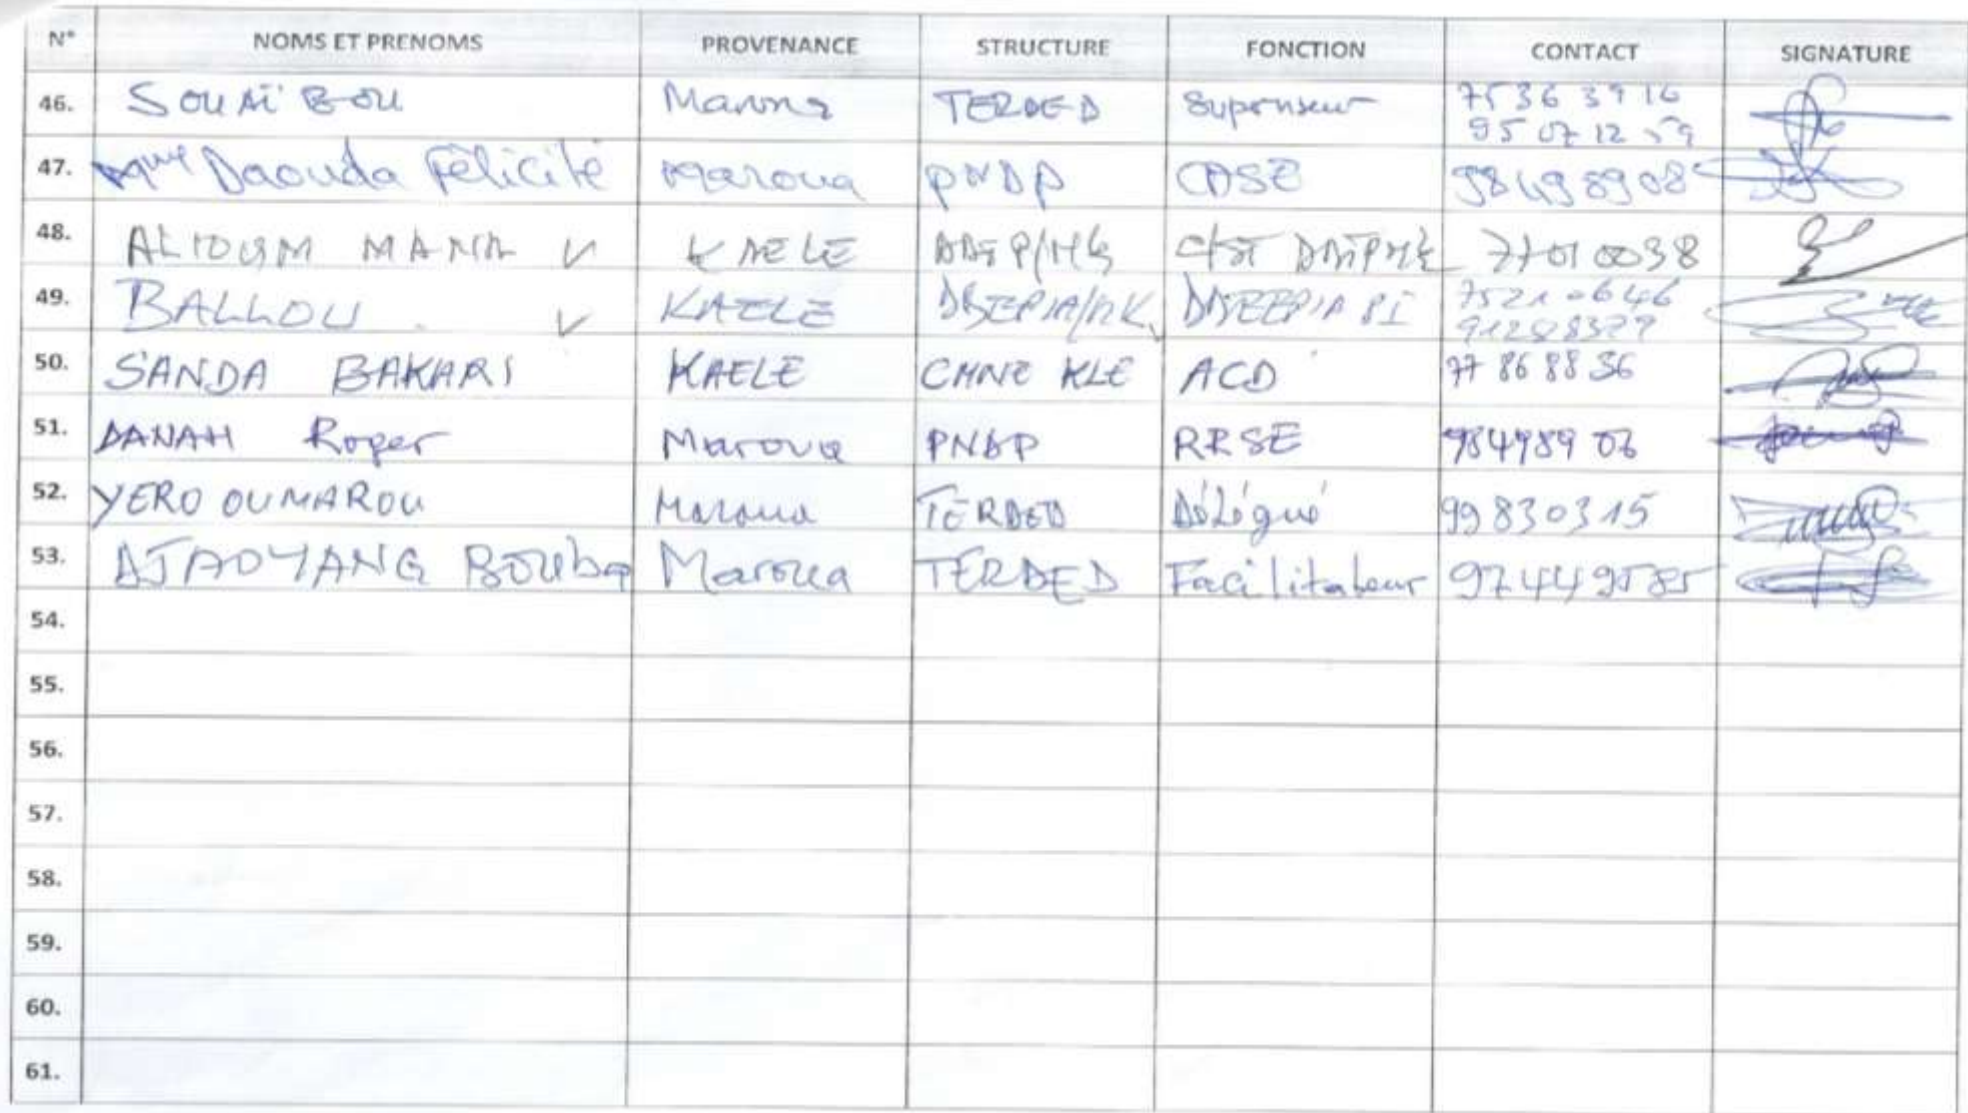 N° NOMS ET PRENOMS PROVENANCE STRUCTURE FONCTION CONTACT SIGNATURE
46. SOUAÏBOU Maroua TERDED Superviseur 75363916
95 07 12 59
47. Mme Daouda Félicité Maroua PNDP CDSE 98498908
48. ALIOUM MANA KAELE 77010038
49. BALLOU KAELE
50. SANDA BAKARI KAELE CMNE KLE ACD 77 86 88 36
51. DANAH Roger Maroua PNDP RRSE 98498906
52. YERO OUMAROU Maroua TERDED Délégué 99830315
53. DJAOYANG Bouba Maroua TERDED Facilitateur 97449585
54.
55.
56.
57.
58.
59.
60.
61.